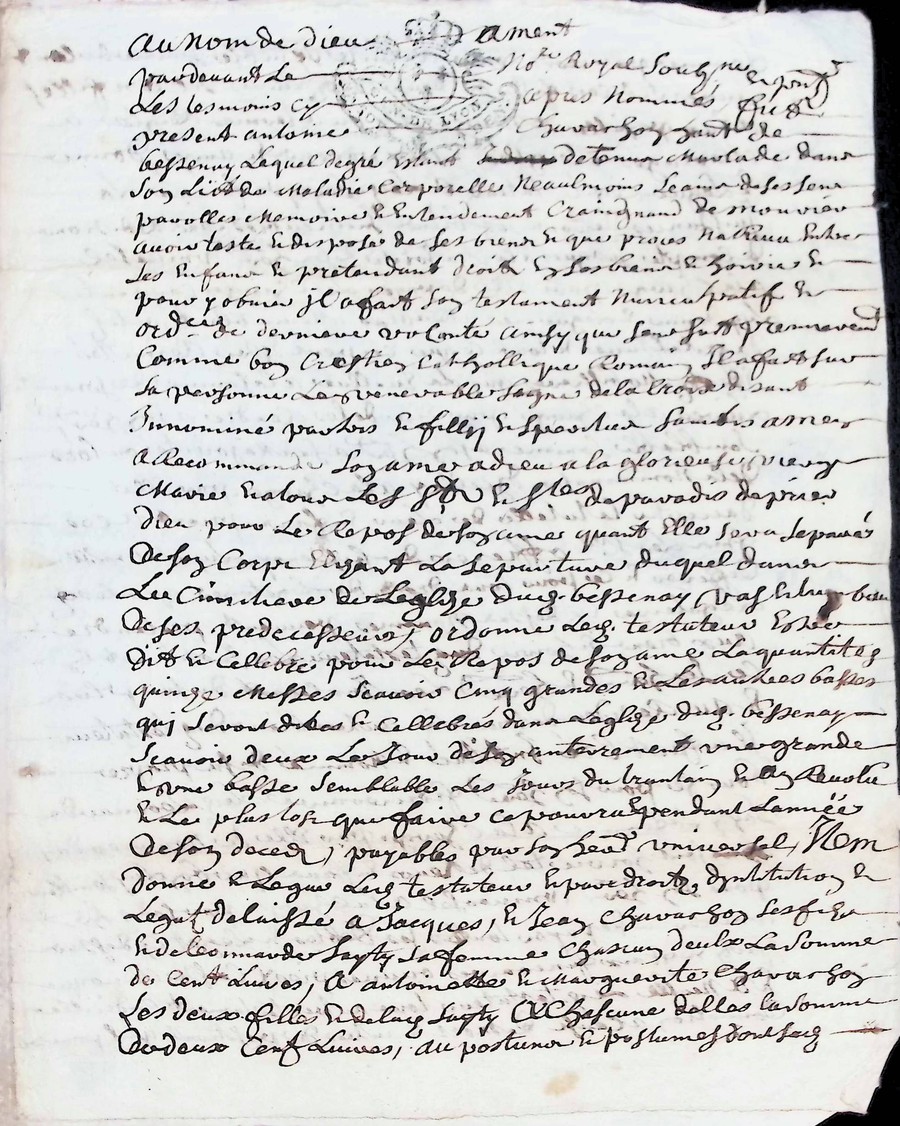 Au nom de dieu Ament
pardevant Le No.re Royal Soubz.ne
Les tesmoins cy apres Nommés
present antoine Chavachon hant de
bessenay Lequel degré Estant detenu Mallade dans
son Lict de Maladie Corporelle Neaulmoins Seain de ses sens
parolles Memoire et Entendement Craignand de mourir
avoir testé et disposé de ses biens et que proces entre
ses Enfans et pretendant droit En ses biens et et
pour y obvier jl a fait son testament Nuncupatif et
ord.ce de derniere volonté ainsy que sen suit premierem.t
Comme bon Crestien Cathollique Romain Il a fait sur
sa personne Le venerable signe de la Croix disant
In nominé patris et fillij et speritus santis amen
a Recommandé son ame a dieu a la glorieuse vierge
Marie et a tous Les S.ts et S.tes de paradis de prier
Dieu pour Le Repos de son ame quant Elle sera separé
De son Corps Elizant La sepulture duquel dans
Le Cimitiere de Leglize dud. bessenay vas et tumbeau
De ses predecesseurs, ordonne Led. testateur Estre
dit et Cellebré pour Le Repos de son ame La quantité de
quinze Messes scavoir Cinq grandes et Les autres basses
quj seront dites et Cellebrés dans Leglize dud. bessenay
scavoir deux Le Jour de son anterrement vne grande
et vne basse semblable Les Jours du trantain et
et Le plus tost que faire ce pourra pendant Lannéé
De son deced, payables par son her.r vniversel, Item
Donne et Legue Led. testateur et par droit dinstitution et
Legat delaissé a Jacques, et Jean Chavachon ses fils
et de Leonnarde sa femme Chascun deulx La somme
de Cent Livres, a antoinette et Marguerite Chavachon
ses deux filles et de lad. a Chascune delles la somme
De deux Cent Livres, au postume et postumes dont lad.